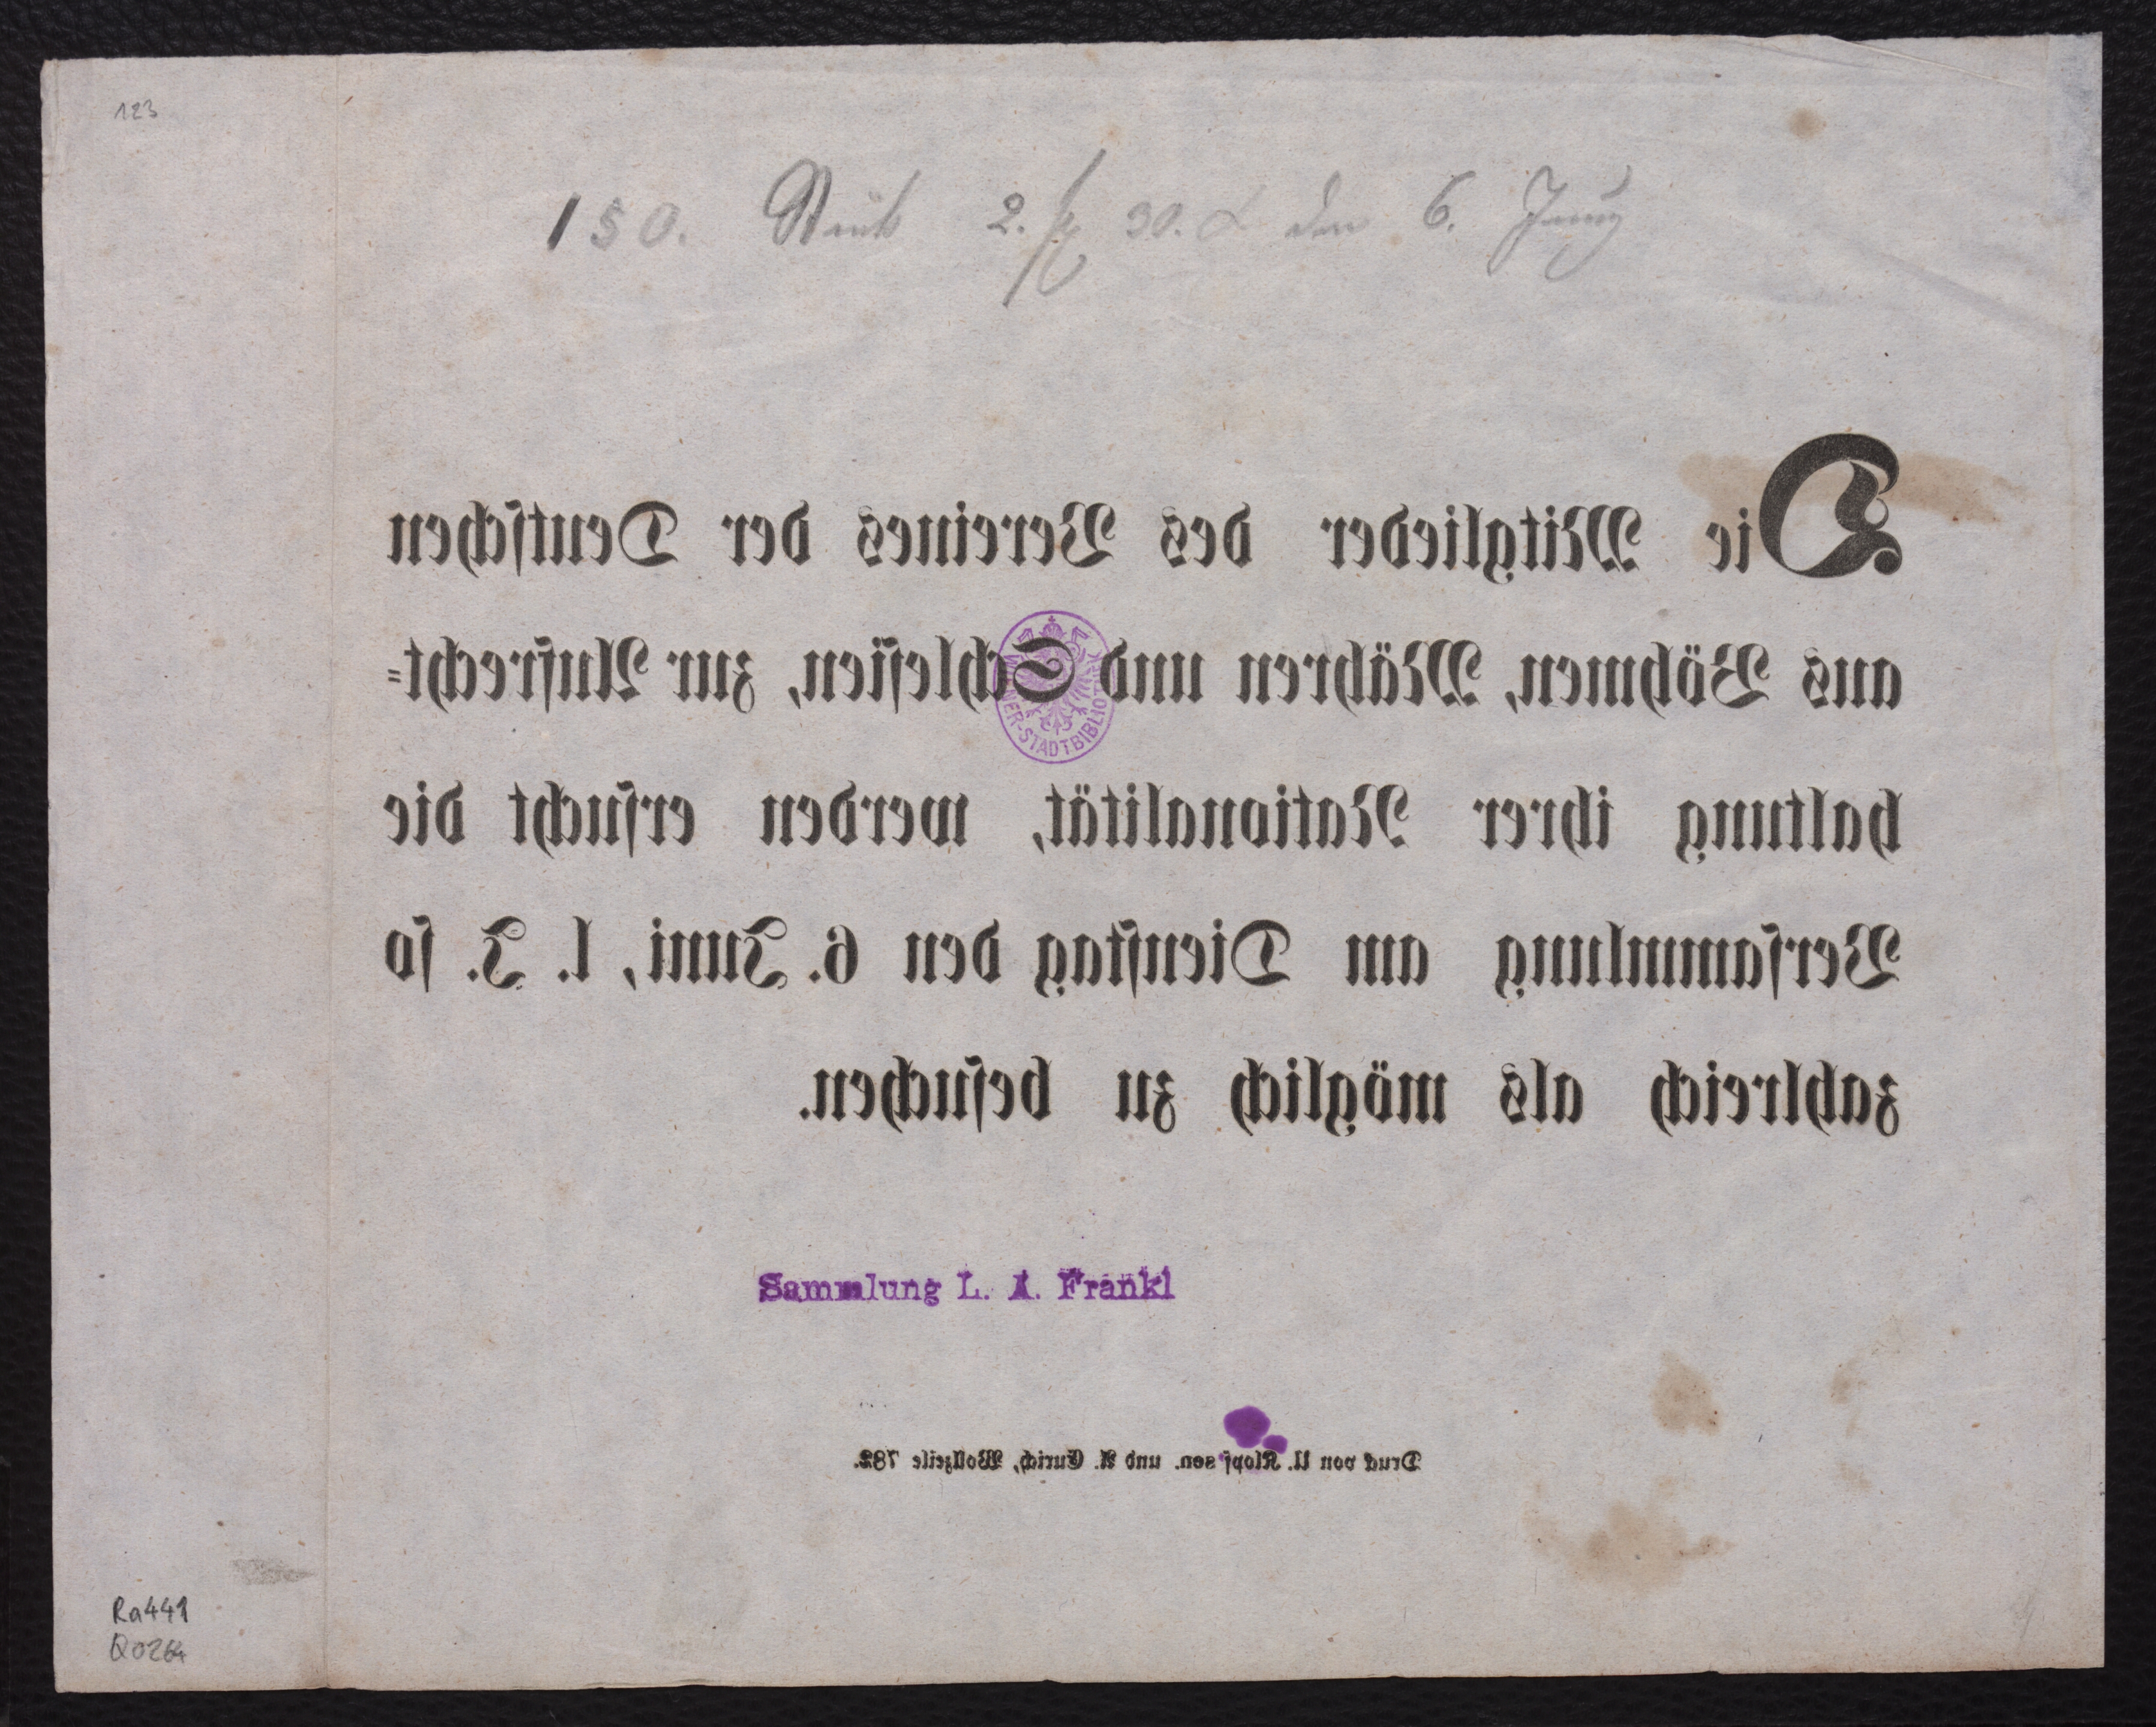 123
150. Stück 2. f 30. x den 6. Juny
Die Mitglieder des Vereines der Deutschen
aus Böhmen, Mähren und Schlesien, zur Aufrecht-
haltung ihrer Nationalität, werden ersucht die
Versammlung am Dienstag den 6. Juni, l. J. so
zahlreich als möglich zu besuchen.
WIENER-STADTBIBLIOTHEK
Sammlung L. A. Frankl
Druck von U. Klopf sen. und A. Eurich, Wollzeile 782.
Ra441
Q0264